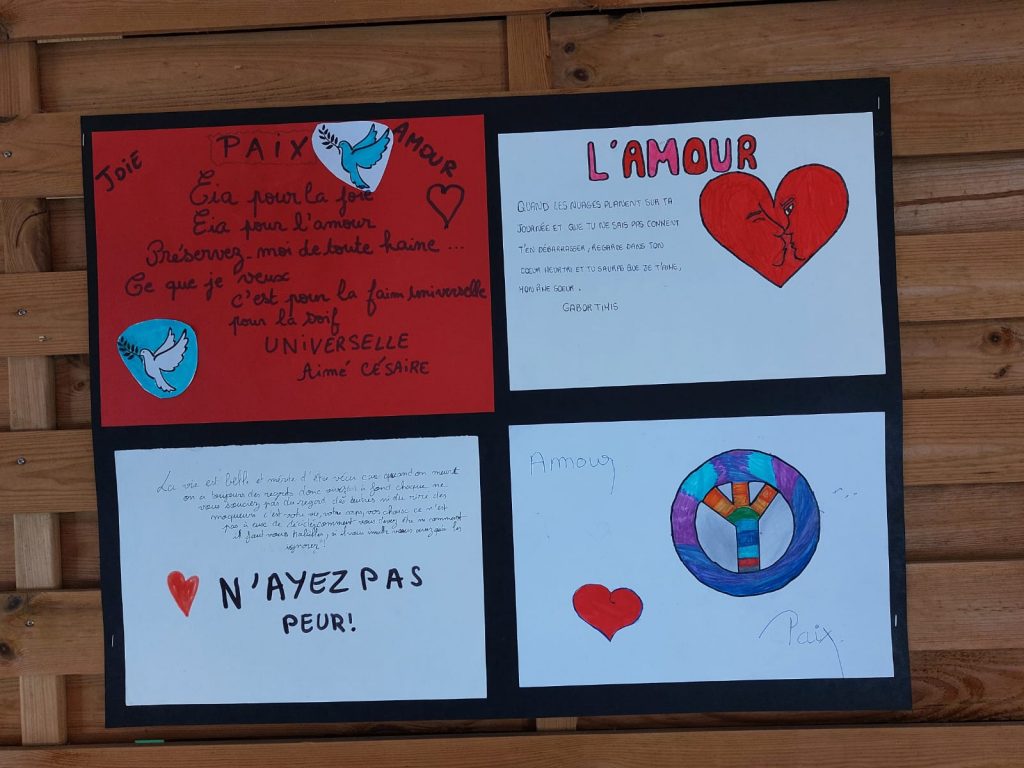 JOIE
PAIX
AMOUR
Eia pour la joie
Eia pour l'amour
Préservez-moi de toute haine ...
Ce que je veux
c'est pour la faim universelle
pour la soif
UNIVERSELLE
Aimé CÉSAIRE
L'AMOUR
QUAND LES NUAGES PLANENT SUR TA
JOURNÉE ET QUE TU NE SAIS PAS COMMENT
T'EN DÉBARRASSER, REGARDE DANS TON
COEUR MEURTRI ET TU SAURAS QUE JE T'AIME,
MON ÂME SOEUR.
GABOR TIMIS
La vie est belle et mérite d'être vécu car quand on meurt
on a toujours des regrets donc vivez à fond chaque
vous souciez pas du regard des autres ni du rire des
moqueurs c'est votre vie, votre corps, vos choix ce n'est
pas à eux de décider comment vous devez être ni comment
il faut vous habiller, si il vous
ignorez!
N'AYEZ PAS
PEUR!
Amour
Paix